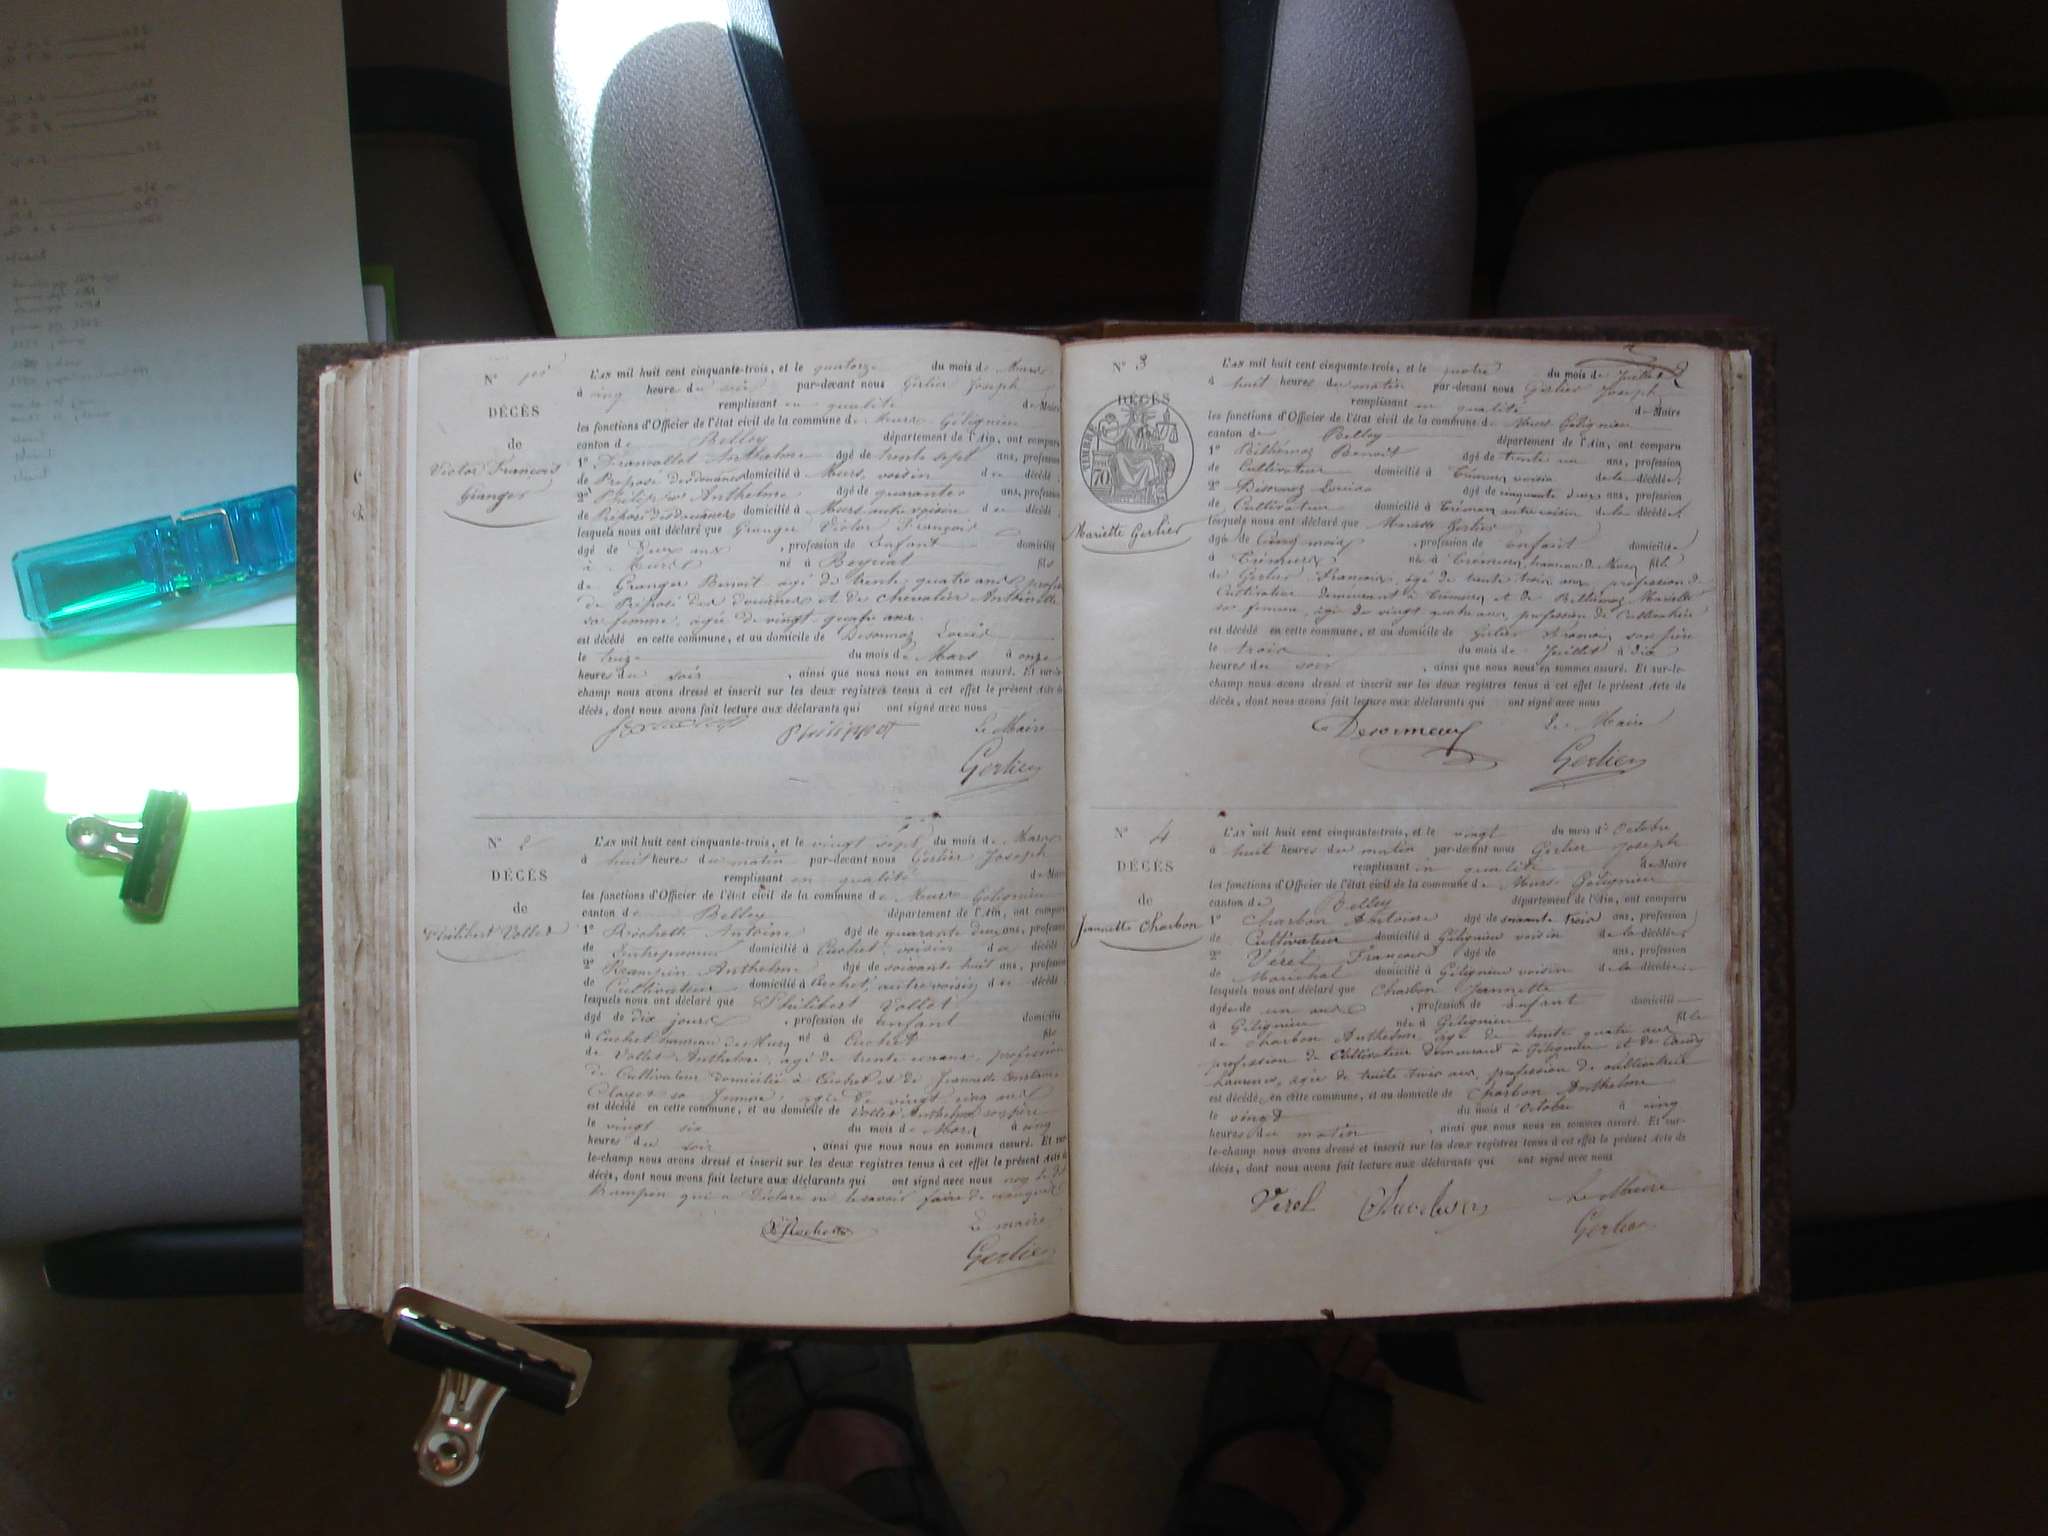 DÉCÈS
de
Victor François
Granger
L'AN mil huit cent cinquante-trois, et le quatorze du mois de Mars
à cinq heure du soir par-devant nous Gerlier Joseph
remplissant en qualité de Maire
les fonctions d'Officier de l'état civil de la commune de Murs Gélignieu
canton de Belley département de l'Ain, ont comparu
1° Anthelme âgé de trente sept ans, profession
de Préposé des douanes domicilié à Murs, voisin du décédé
2° Anthelme âgé de quarante ans, profession
de Préposé des douanes domicilié à Murs, autre voisin du décédé
lesquels nous ont déclaré que Granger Victor François
âgé de Deux ans , profession de Enfant domicilié
à né à Beyriat fils
de Granger Benoit agé de trente quatre ans, profess
de Préposé des douanes et de Chevalier
sa femme, agée de vingt quatre ans
est décédé en cette commune, et au domicile de Louis
le treize du mois de Mars à onze
heures du soir , ainsi que nous nous en sommes assuré. Et sur-le-
champ nous avons dressé et inscrit sur les deux registres tenus à cet effet le présent Acte de
décès, dont nous avons fait lecture aux déclarants qui ont signé avec nous
Philippot Le Maire
Gerlier
N° 2
DÉCÈS
de
Philibert Vollet
L'AN mil huit cent cinquante-trois, et le vingt sept du mois de Mars
à huit heures du matin par-devant nous Gerlier Joseph
remplissant en qualité de Maire
les fonctions d'Officier de l'état civil de la commune de Murs Gélignieu
canton de Belley département de l'Ain, ont comparu
1° Rochette Antoine âgé de quarante deux ans, profession
de Entrepreneur domicilié à Cuchet, voisin du décédé
2° Anthelme âgé de soixante huit ans, profession
de Cultivateur domicilié à Cuchet, autre voisin du décédé
lesquels nous ont déclaré que Philibert Vollet
âgé de dix jours , profession de Enfant domicilié
à Cuchet hameau de Murs né à Cuchet fils
de Vollet Anthelme, agé de trente ans, profession
de Cultivateur domicilié à Cuchet et de Jeannette Constance
sa femme, agée de vingt cinq ans
est décédé en cette commune, et au domicile de Vollet Anthelme son père
le vingt six du mois de Mars à cinq
heures du soir , ainsi que nous nous en sommes assuré. Et sur-
le-champ nous avons dressé et inscrit sur les deux registres tenus à cet effet le présent Acte de
décès, dont nous avons fait lecture aux déclarants qui ont signé avec nous
qui a déclaré ne le savoir faire de
Rochette Le maire
Gerlier
N° 3
DÉCÈS
TIMBRE
70
Mariette Gerlier
L'AN mil huit cent cinquante-trois, et le quatre du mois de Juillet
à huit heures du matin par-devant nous Gerlier Joseph
remplissant en qualité de Maire
les fonctions d'Officier de l'état civil de la commune de Murs Gélignieu
canton de Belley département de l'Ain, ont comparu
1° Benoit âgé de trente un ans, profession
de Cultivateur domicilié à voisin de la décédée
2° Louis âgé de cinquante deux ans, profession
de Cultivateur domicilié à autre voisin de la décédée
lesquels nous ont déclaré que Mariette Gerlier
âgée de Cinq mois , profession de enfant domiciliée
à née à hameau de Murs fille
de Gerlier François, agé de trente trois ans, profession de
Cultivateur demeurant à et de Mariette
sa femme, agée de vingt quatre ans, profession de Cultivatrice
est décédée en cette commune, et au domicile de Gerlier François son père
le trois du mois de Juillet à dix
heures du soir , ainsi que nous nous en sommes assuré. Et sur-le-
champ nous avons dressé et inscrit sur les deux registres tenus à cet effet le présent Acte de
décès, dont nous avons fait lecture aux déclarants qui ont signé avec nous
Le Maire
Gerlier
N° 4
DÉCÈS
de
Jeannette Charbon
L'AN mil huit cent cinquante-trois, et le vingt du mois d'Octobre
à huit heures du matin par-devant nous Gerlier Joseph
remplissant en qualité de Maire
les fonctions d'Officier de l'état civil de la commune de Murs Gélignieu
canton de Belley département de l'Ain, ont comparu
1° Charbon Antoine âgé de soixante trois ans, profession
de Cultivateur domicilié à Gélignieu voisin de la décédée
2° Verel François âgé de ans, profession
de Maréchal domicilié à Gélignieu voisin de la décédée
lesquels nous ont déclaré que Charbon Jeannette
âgée de un ans , profession de Enfant domicilié
à Gélignieu née à Gélignieu fille
de Charbon Anthelme agé de trente quatre ans
profession de Cultivateur demeurant à Gélignieu et de
agée de trente trois ans, profession de cultivatrice
est décédée en cette commune, et au domicile de Charbon Anthelme
le vingt du mois d'Octobre à cinq
heures du matin , ainsi que nous nous en sommes assuré. Et sur-
le-champ nous avons dressé et inscrit sur les deux registres tenus à cet effet le présent Acte de
décès, dont nous avons fait lecture aux déclarants qui ont signé avec nous
Verel Charbon Le Maire
Gerlier